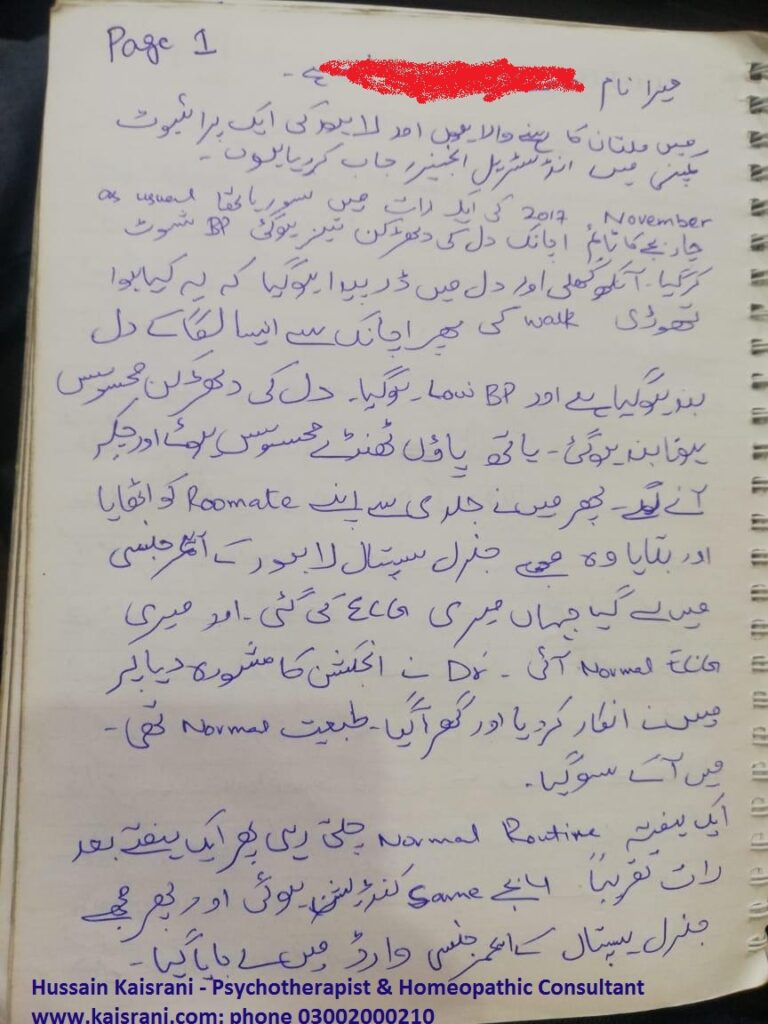 Page 1
میرا نام ہے۔
میں ملتان کا رہنے والا ہوں اور لاہور کی ایک پرائیوٹ
کمپنی میں انڈسٹریل انجینئر جاب کر رہا ہوں۔
November 2017 کی ایک رات میں سو رہا تھا as usual
چار بجے کا ٹائم اچانک دل کی دھڑکن تیز ہو گئی BP شوٹ
کر گیا۔ آنکھ کھلی اور دل میں ڈر پیدا ہو گیا کہ یہ کیا ہوا
تھوڑی walk کی پھر اچانک سے ایسا لگا کے دل
بند ہو گیا ہے اور Low BP ہو گیا۔ دل کی دھڑکن محسوس
ہونا بند ہو گئی۔ ہاتھ پاؤں ٹھنڈے محسوس ہوئے اور چکر
آنے لگے۔ پھر میں نے جلدی سے اپنے Roomate کو اٹھایا
اور بتایا وہ مجھے جنرل ہسپتال لاہور کے ایمرجنسی
میں لے گیا جہاں میری ECG کی گئی۔ اور میری
ECG Normal آئی۔ Dr نے انجکشن کا مشورہ دیا پر
میں نے انکار کر دیا اور گھر آ گیا۔ طبیعت Normal تھی۔
میں آ کے سو گیا۔
ایک ہفتہ Normal Routine چلتی رہی پھر ایک ہفتے بعد
رات تقریباً بجے Same کنڈیشن ہوئی اور پھر مجھے
جنرل ہسپتال کے ایمرجنسی وارڈ میں لے جایا گیا۔
Hussain Kaisrani - Psychotherapist & Homeopathic Consultant
www.kaisrani.com; phone 03002000210